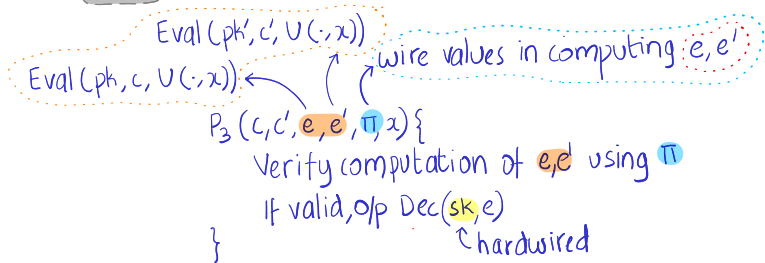 Eval(pk',c',U(·,x))
Eval(pk,c,U(·,x))
wire values in computing e,e'
P₃(c,c',e,e',π,x){
Verify computation of e,e' using π
If valid,o/p Dec(sk,e)
hardwired
}